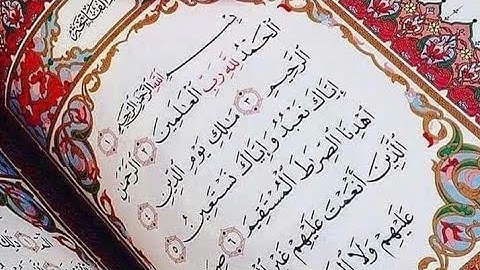 بِسْمِ ٱللَّهِ ٱلرَّحْمَٰنِ ٱلرَّحِيمِ ١
ٱلْحَمْدُ لِلَّهِ رَبِّ ٱلْعَٰلَمِينَ ٢ ٱلرَّحْمَٰنِ
ٱلرَّحِيمِ ٣ مَٰلِكِ يَوْمِ ٱلدِّينِ ٤
إِيَّاكَ نَعْبُدُ وَإِيَّاكَ نَسْتَعِينُ ٥
ٱهْدِنَا ٱلصِّرَٰطَ ٱلْمُسْتَقِيمَ ٦
ٱلَّذِينَ أَنْعَمْتَ عَلَيْهِمْ غَيْرِ
عَلَيْهِمْ وَلَا